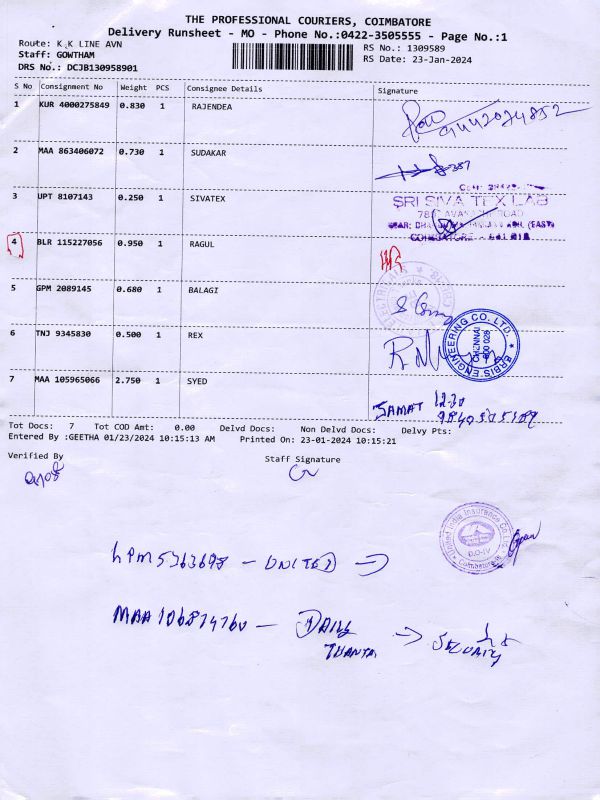 THE PROFESSIONAL COURIERS, COIMBATORE
Delivery Runsheet - MO - Phone No.:0422-3505555 - Page No.:1
Route: K K LINE AVN
Staff: GOWTHAM
DRS No.: DCJB130958901
RS No.: 1309589
RS Date: 23-Jan-2024
S No Consignment No Weight PCS Consignee Details Signature
1 KUR 4000275849 0.830 1 RAJENDEA
9442074852
2 MAA 863406072 0.730 1 SUDAKAR
3 UPT 8107143 0.250 1 SIVATEX
SRI SIVA TEX LAB
ROAD
(EAST)
4 BLR 115227056 0.950 1 RAGUL
5 GPM 2089145 0.680 1 BALAGI
6 TNJ 9345830 0.500 1 REX
ERBIS ENGINEERING CO. LTD.
CHENNAI
600 028
7 MAA 105965066 2.750 1 SYED
SAMAT 12-30
Tot Docs: 7 Tot COD Amt: 0.00 Delvd Docs: Non Delvd Docs: Delvy Pts:
Entered By :GEETHA 01/23/2024 10:15:13 AM Printed On: 23-01-2024 10:15:21
Verified By Staff Signature
United India Insurance Co. Ltd.
D.O-IV
Coimbatore
- UNITED
MAA 106874760 - DAILY
SECURITY